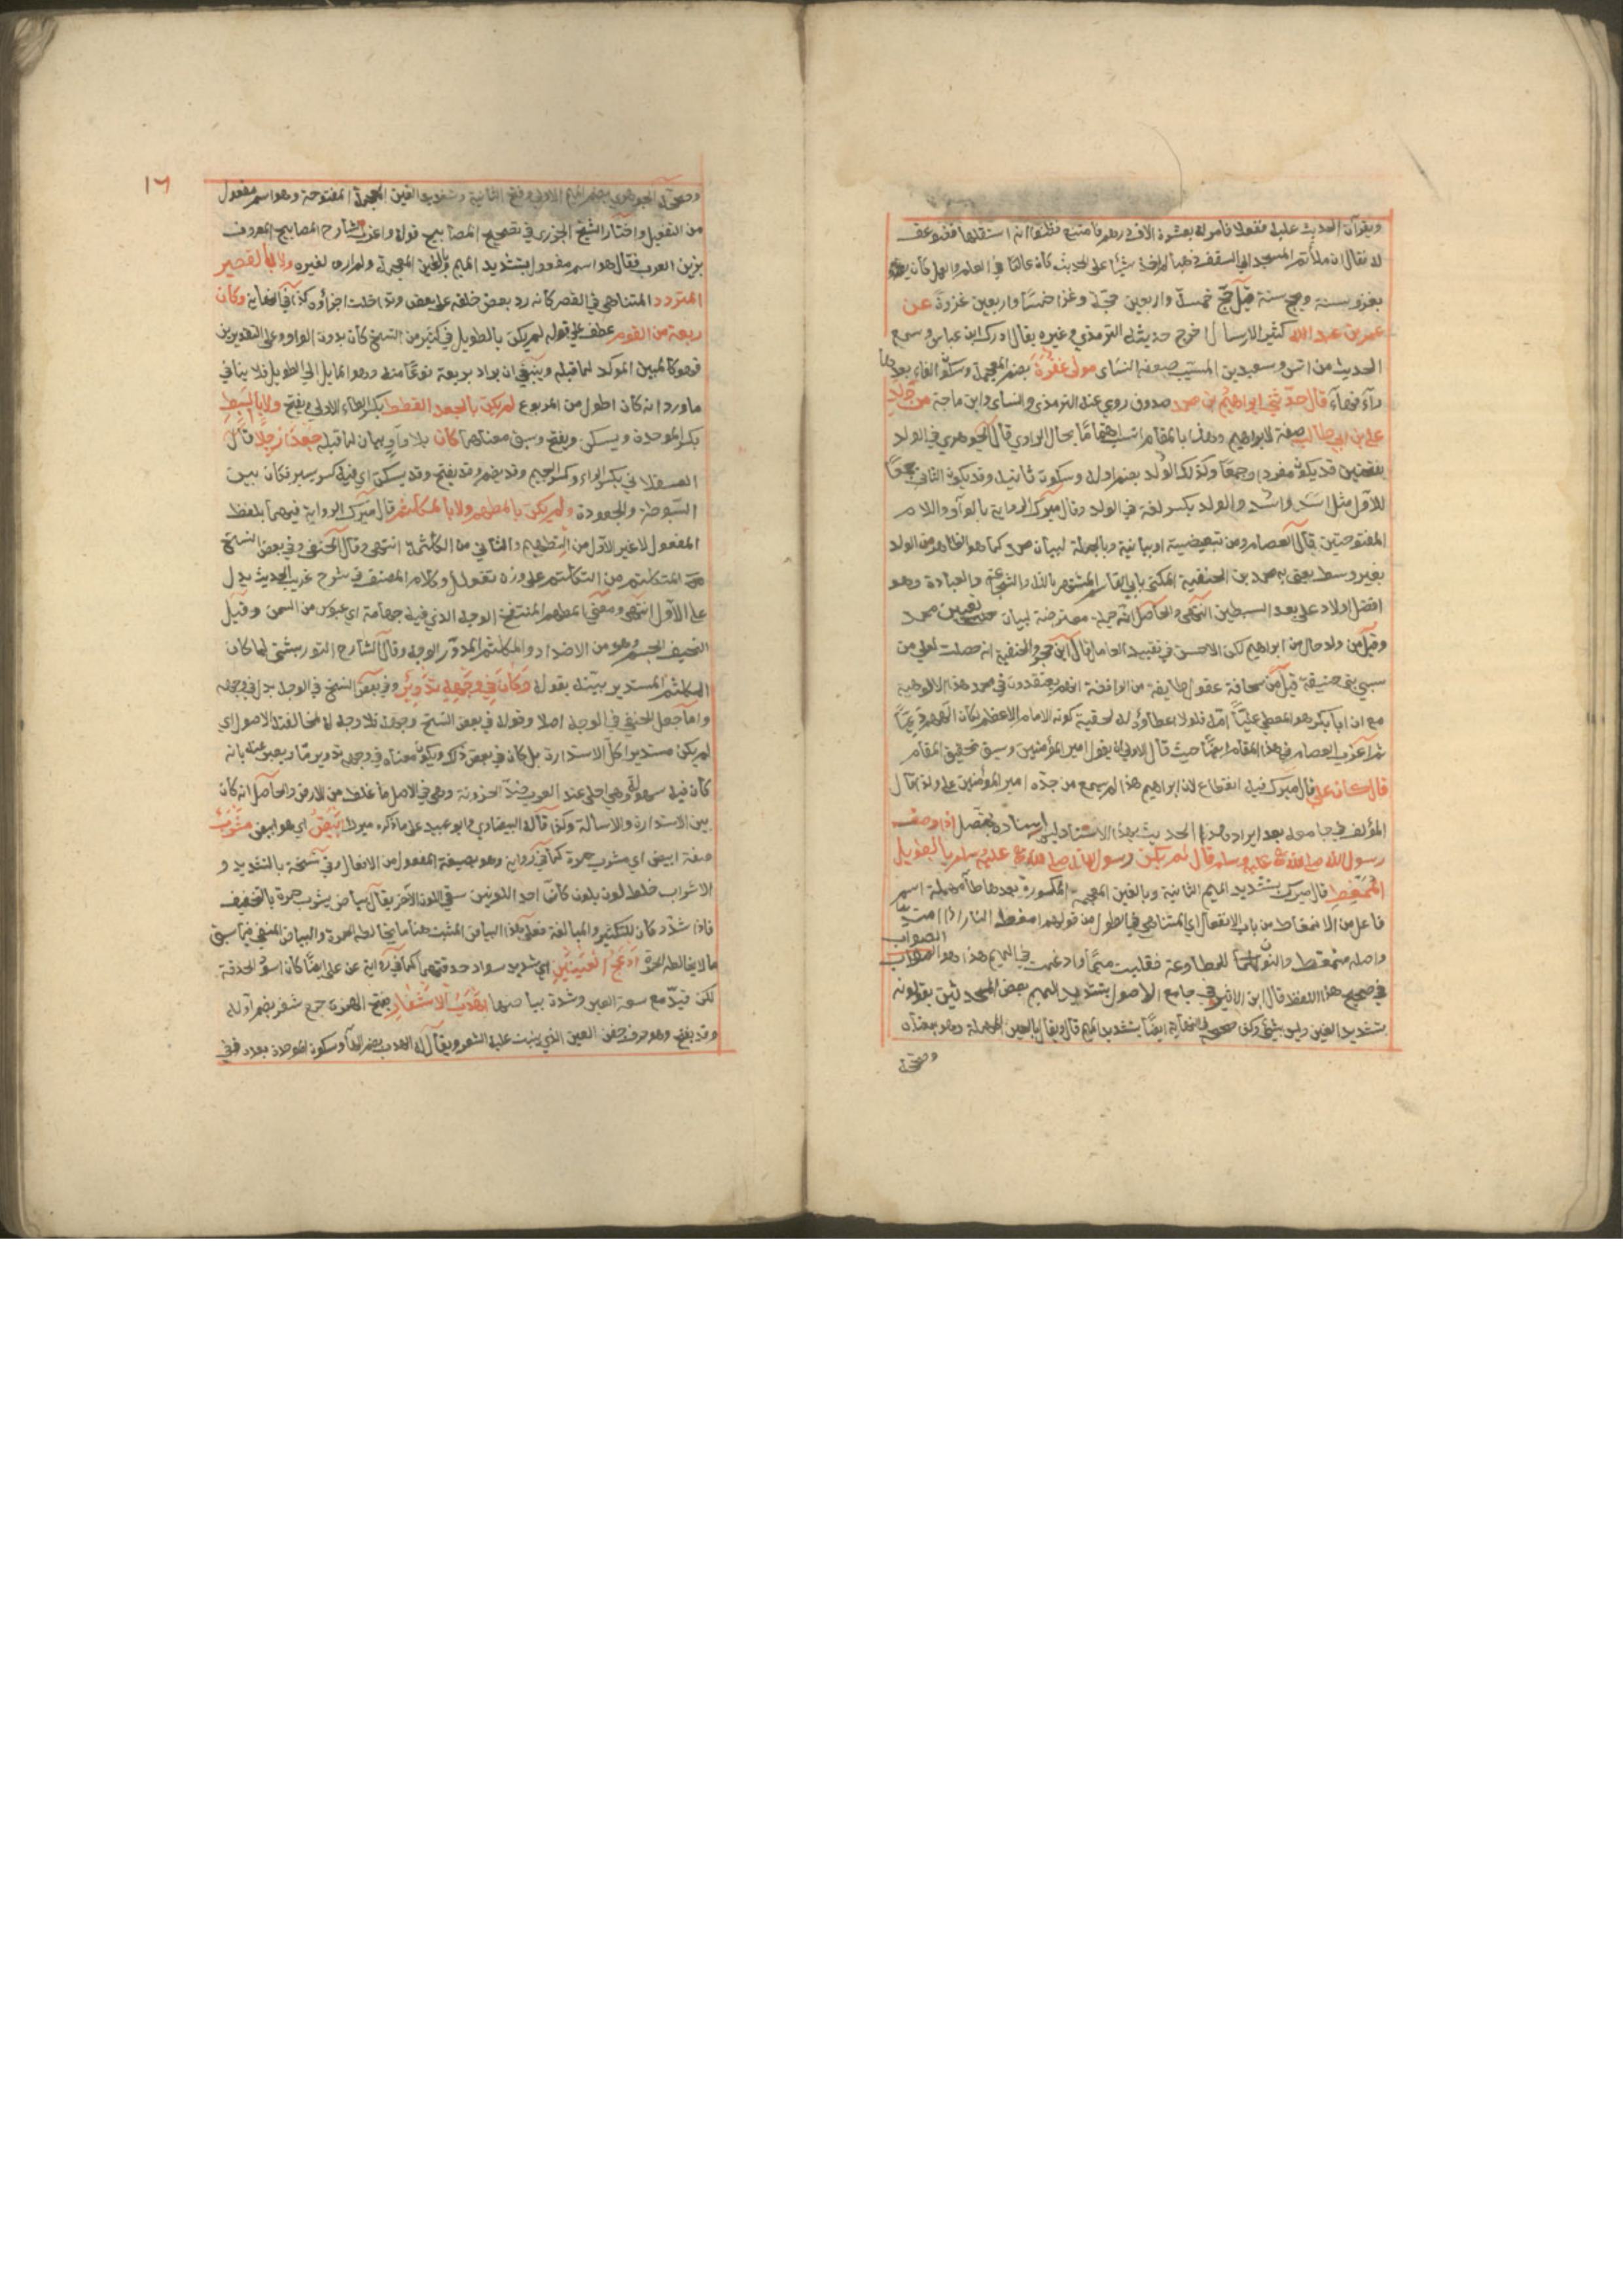 ويقرآن الحديث عليه ففعلا فامر له بعشرة الاف درهم فامتنع فظنوا انه استقلها فضوعف
له فقال ان ملأتم المسجد الى السقف ذهبا لم اخذ شيئا على الحديث كان عالما في العلم والعمل كان
يغزو سنة ويحج سنة قيل حج خمسة واربعين حجة وغزا خمسا واربعين غزوة عن
عمر بن عبد الله كثير الارسال اخرج حديثه الترمذي وغيره يقال ادرك ابن عباس وسمع
الحديث من انس وسعيد بن المسيب ضعفه النسائي مولى غفرة بضم المعجمة وسكون الفاء بعدها
راء فهاء قال حدثني ابراهيم بن محمد صدوق روى عنه الترمذي والنسائي وابن ماجة من ولد
علي بن ابي طالب صفة لابراهيم وذلك بالمقام اهتماما بحال الراوي قال الجوهري الولد
بفتحتين قد يكون مفردا وجمعا وكذلك الولد بضم اوله وسكون ثانيه وقد يكون الثاني جمعا
للاول مثل اسد واسد والولد بكسر لغة في الولد وقال ميرك الرواية بالواو واللام
المفتوحتين قال العصام ومن تبعيضية او بيانية وبالجملة لبيان محمد كما هو الظاهر من الولد
بغير وسط يعني به محمد بن الحنفية المكنى بابي القاسم المشتهر بالشجاعة والعبادة وهو
افضل اولاد علي بعد السبطين انتهى والحاصل انه جملة معترضة لبيان تعيين محمد
وقيل من ولد حال من ابراهيم لكن الاحسن في تقييد العامل قال ابن حجر والحنفية انه حصلت لعلي من
سبي بني حنيفة قيل من سخافة عقول طايفة من الرافضة انهم يعتقدون في محمد هذا الالوهية
مع ان ابا بكر هو المعطي عليا امه فلولا اعطاؤه له لحقية كونه الامام الاعظم لكان
ثم اغرب العصام في هذا المقام ايضا حيث قال الاولى ان يقول امير المؤمنين وسبق تحقيق المقام
قال كان علي قال ميرك فيه انقطاع لان ابراهيم هذا لم يسمع من جده امير المؤمنين علي ولذا قال
المؤلف في جامعه بعد ايراد هذا الحديث بهذا الاسناد ليس اسناده بمتصل اذا وصف
رسول الله صلى الله عليه وسلم قال لم يكن رسول الله صلى الله عليه وسلم بالطويل
الممغط قال ميرك بتشديد الميم الثانية وبالغين المعجمة المكسورة بعدها طاء مهملة اسم
فاعل من الانمغاط من باب الانفعال اي المتناهي في الطول من قولهم امغط النهار اذا امتد
واصله منمغط والنون للمطاوعة فقلبت ميما وادغمت في الميم هذا هو الصواب
في صحيح هذا اللفظ قال ابن الاثير في جامع الاصول بتشديد الميم بعض المحدثين يقولونه
بتشديد الغين وليس بشيء ولكن صححه في النهاية ايضا بتشديد الميم قال ويقال بالعين المهملة وهو بمعناه
وصححه
١٦
وصححه الجوهري بضم الميم الاولى وفتح الثانية وتشديد الغين المعجمة المفتوحة وهو اسم مفعول
من التفعيل واختار الشيخ الجزري في تصحيح المصابيح قوله واغرب شارح المصابيح المعروف
بزين العرب فقال هو اسم مفعول بتشديد الميم وبالغين المعجمة ولم اره لغيره ولا بالقصير
المتردد المتناهي في القصر كانه رد بعض خلقه على بعض وتداخلت اجزاؤه كذا في النهاية وكان
ربعة من القوم عطف على قوله لم يكن بالطويل في كثير من النسخ كان بدون الواو وعلى التقديرين
فهو كالمبين المؤكد لما قبله وينبغي ان يراد بربعة نوعا منه وهو المايل الى الطويل فلا ينافي
ما ورد انه كان اطول من المربوع لم يكن بالجعد القطط بكسر الطاء الاولى ويفتح ولا بالسبط
بكسر الموحدة ويسكن ويفتح وسبق معناهما كان بلا واو بيان لما قبله جعدا رجلا قال
العسقلاني بكسر الراء وكسر الجيم وقد يضم وقد يفتح وقد يسكن اي فيه كسر يسير فكان بين
السبوطة والجعودة ولم يكن بالمطهم ولا بالمكلثم قال ميرك الرواية فيهما بلفظ
المفعول لا غير الاول من التطهيم والثاني من الكلثمة انتهى وقال الحنفي وفي بعض النسخ
المتكلثم من التكلثم على وزن تفعلل وكلام المصنف في شرح غريب الحديث يدل
على الاول انتهى ومعنى المطهم المنتفخ الوجه الذي فيه جهامة اي عبوس من السمن وقيل
النحيف الجسم وهو من الاضداد والمكلثم المدور الوجه وقال الشارح التوربشتي لما كان
المكلثم المستدير بينه بقوله وكان في وجهه تدوير وفي بعض النسخ في الوجه بدل في وجهه
واما جعل الحنفي في الوجه اصلا وقوله في بعض النسخ وجهه فلا وجه له لمخالفته الاصول اي
لم يكن مستديرا كل الاستدارة بل كان في بعض ذلك ويكون معناه في وجهه تدوير ما ويعبر عنه بانه
كان فيه سهولة وهي احلى عند العرب ضد الحزونة وهي في الاصل ما غلظ من الارض والحاصل انه كان
بين الاستدارة والاسالة وكذا قاله البيضاوي وابو عبيد على ما ذكره ميرك ابيض اي هو ابيض مشرب
صفة ابيض اي مشرب حمرة كما في رواية وهو بصيغة المفعول من الافعال وفي نسخة بالتشديد و
الاشراب خلط لون بلون كان احد اللونين سقي اللون الاخر يقال بياض يشرب حمرة بالتخفيف
فاذا شدد كان للتكثير والمبالغة فعلى هذا البياض المثبت هنا ما يخالطه الحمرة والبياض المنفي فيما سبق
ما لا يخالطه الحمرة ادعج العينين اي شديد سواد حدقتهما كما في رواية عن علي ايضا كان اسود الحدقة
لكن قيد مع سعة العين وشدة بياضها اهدب الاشفار بفتح الهمزة جمع شفر بضم اوله
وقد يفتح وهو حرف جفن العين الذي ينبت عليه الشعر ويقال له الهدب بضم الهاء وسكون الموحدة بعده ففي